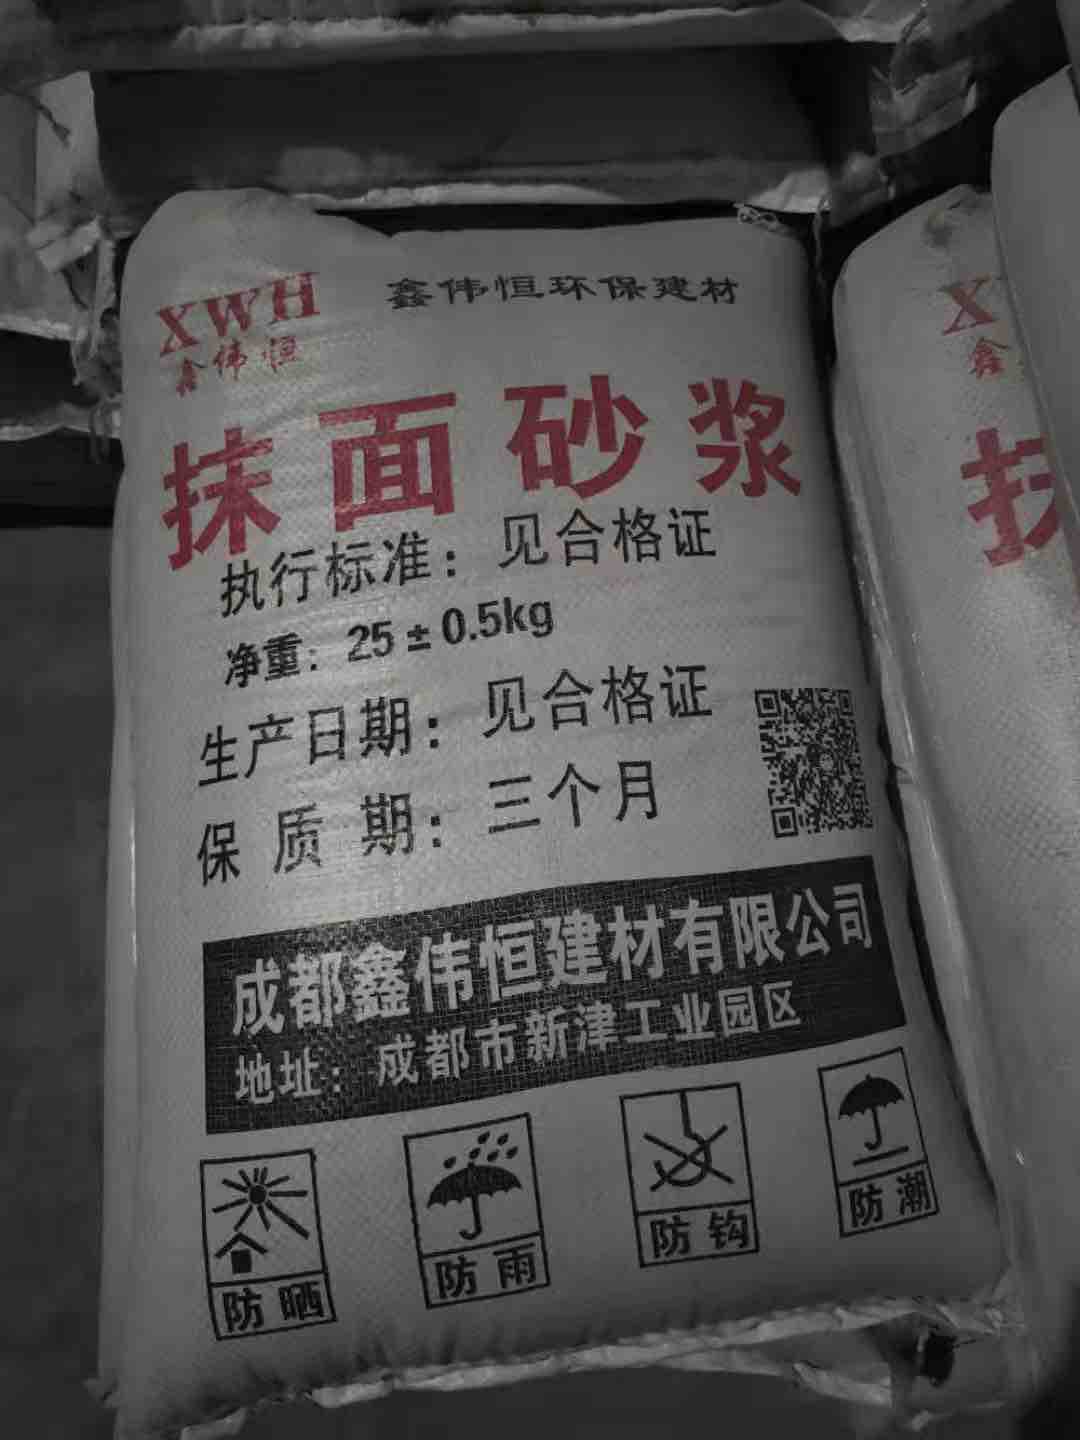 XWH
鑫伟恒
鑫伟恒环保建材
抹面砂浆
执行标准：见合格证
净重：25±0.5kg
生产日期：见合格证
保质期：三个月
成都鑫伟恒建材有限公司
地址：成都市新津工业园区
防晒
防雨
防钩
防潮
X
鑫